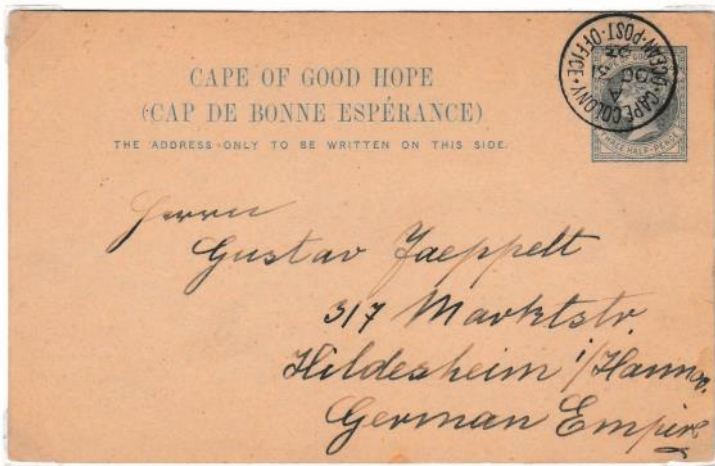 CAPE OF GOOD HOPE
(CAP DE BONNE ESPÉRANCE)
THE ADDRESS ONLY TO BE WRITTEN ON THIS SIDE.
OCEAN·POST·OFFICE·CAPE COLONY·
A
OC
CAPE OF GOOD
THREE HALF-PENCE
Herrn
Gustav Jaeppelt
317 Marktstr.
Hildesheim i/Hannov.
German Empire